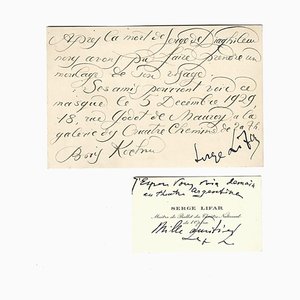 Après la mort de Serge de Diaghilew
nous avons pu faire prendre un
moulage de son visage.
Ses amis pourront voir ce
masque le 5 Décembre 1929
13, rue Godot de Mauroy à la
galerie des Quatre Chemins de
Boris Kochno
Serge Lifar
demain
au théâtre Argentina
SERGE LIFAR
Maître de Ballet du Théâtre National
de l'Opéra
Mille